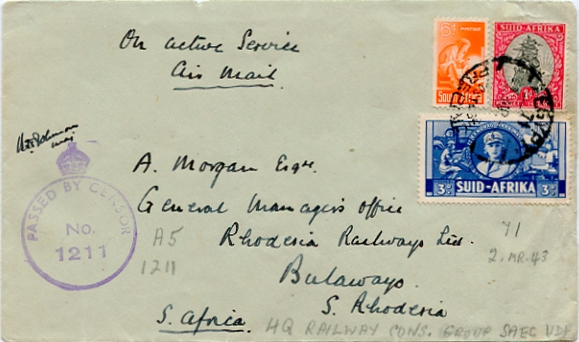 On active Service
Air Mail
6D POSTAGE
SOUTH AFRICA
SUID-AFRIKA
1D
EGYPT
71
PREPAID
3D SUID-AFRIKA 3D
PASSED BY CENSOR
No.
1211
A. Morgan Esqre.
General Manager's office
Rhodesia Railways Ltd.
Bulawayo.
S. Rhodesia
S. Africa.
A5
1211
71
2.MR.43
HQ RAILWAY CONS. GROUP SAEC UDF